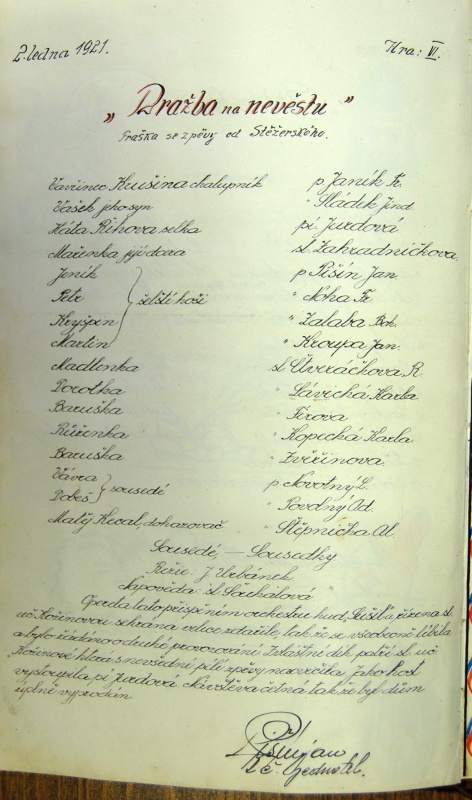 2. ledna 1921. Hra: VI.
„Dražba na nevěstu"
Fraška se zpěvy od Stěžerského.
Vavřinec Krušina chalupník p. Janík Fr.
Vašek jeho syn " Sládek Jind.
Káta Říhova selka pí. Jurdová
Mařenka její dcera sl. Zahradníčkova
Jeník p Pišín Jan
Petr " Noha Fr
Kryšpín šelští hoši " Zalaba Boh.
Martin " Kroupa Jan.
Madlenka sl. Čtveráčkova R
Dorotka " Lávická Karla
Baruška " Fírova
Růženka " Kopecká Karla
Baruška " Zvěřinova
Vávra p Novotný L.
Dobeš sousedé " Povdný Ad.
Matěj Kecal, dohazovač " Štěpnička Al.
Sousedé, — Sousedky
Režie: J Urbánek
Napověda: sl.
Opereta tato přispěním orchestru hud. a řízena sl.
uč. Kořínovou sehrána velice zdařile, tak že se všeobecně líbila
a bylo žádáno o druhé provozování. Zvláštní dík patří sl. uč
Kořínové která s nevšední pílí zpěvy nacvičila. Jako host
vystoupila pí Jurdová. Návštěva četná tak že byl dům
úplně vyprodán
t č. jednatel.